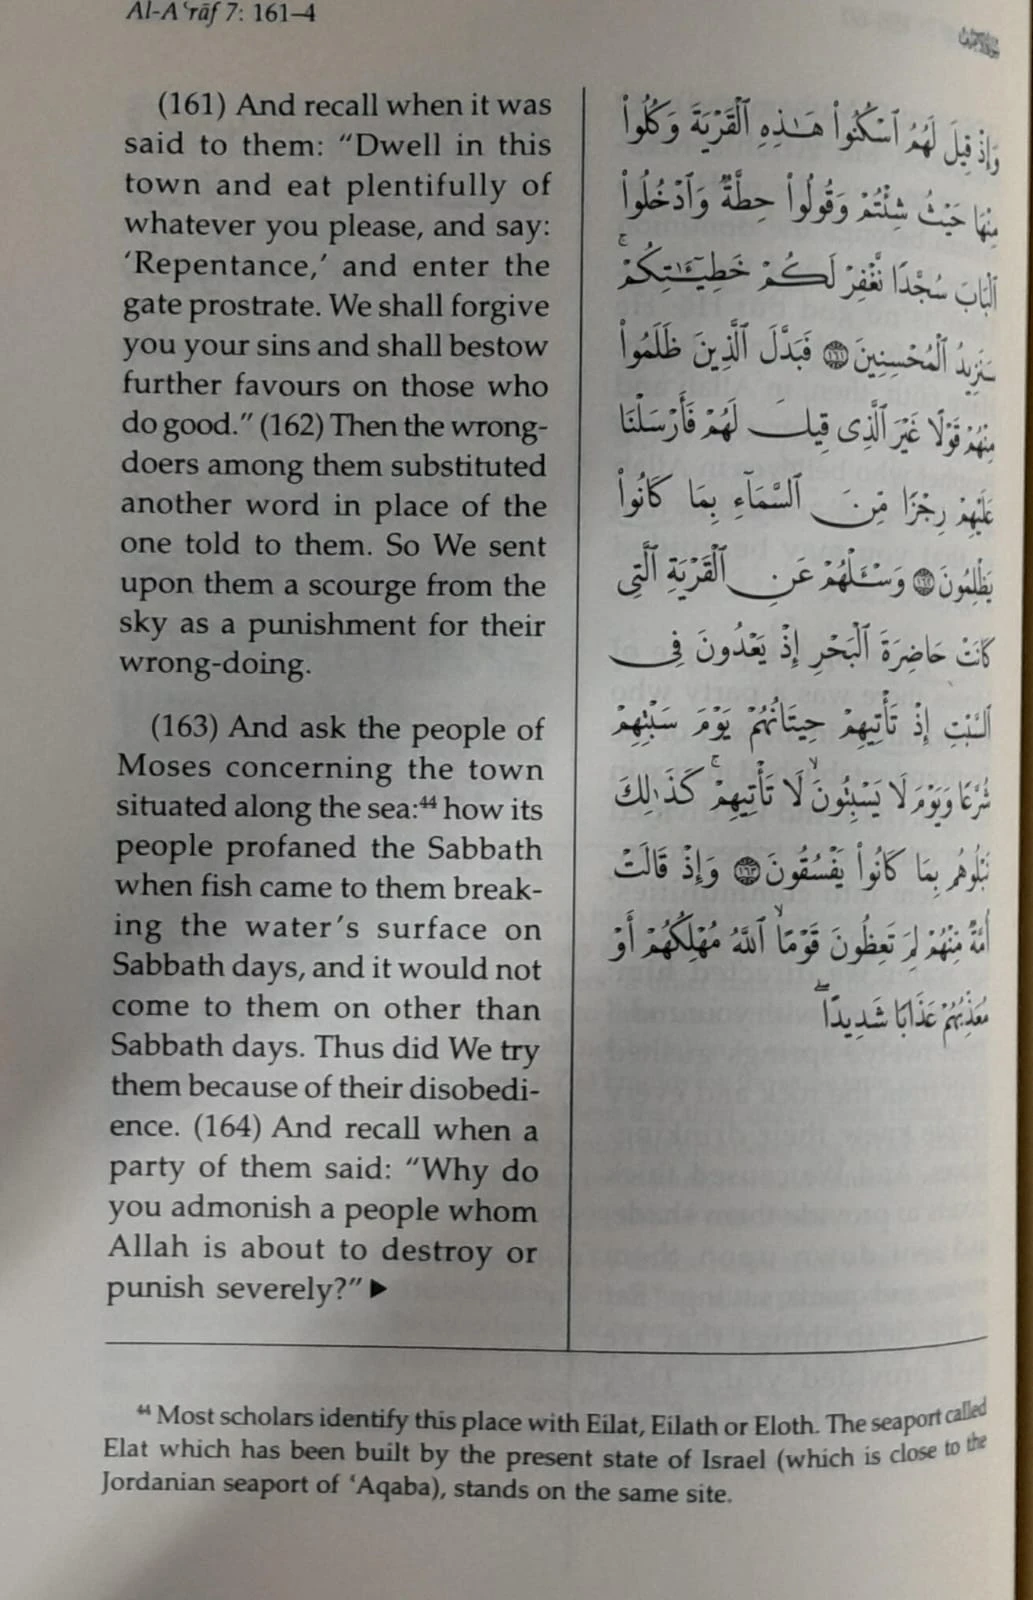 Al-Aʿrāf 7: 161–4
(161) And recall when it was
said to them: “Dwell in this
town and eat plentifully of
whatever you please, and say:
‘Repentance,’ and enter the
gate prostrate. We shall forgive
you your sins and shall bestow
further favours on those who
do good.” (162) Then the wrong-
doers among them substituted
another word in place of the
one told to them. So We sent
upon them a scourge from the
sky as a punishment for their
wrong-doing.
(163) And ask the people of
Moses concerning the town
situated along the sea:⁴⁴ how its
people profaned the Sabbath
when fish came to them break-
ing the water’s surface on
Sabbath days, and it would not
come to them on other than
Sabbath days. Thus did We try
them because of their disobedi-
ence. (164) And recall when a
party of them said: “Why do
you admonish a people whom
Allah is about to destroy or
punish severely?” ▶
وَإِذْ قِيلَ لَهُمُ ٱسْكُنُوا۟ هَـٰذِهِ ٱلْقَرْيَةَ وَكُلُوا۟
مِنْهَا حَيْثُ شِئْتُمْ وَقُولُوا۟ حِطَّةٌ وَٱدْخُلُوا۟
ٱلْبَابَ سُجَّدًا نَّغْفِرْ لَكُمْ خَطِيٓـَٔـٰتِكُمْ ۚ
سَنَزِيدُ ٱلْمُحْسِنِينَ ١٦١ فَبَدَّلَ ٱلَّذِينَ ظَلَمُوا۟
مِنْهُمْ قَوْلًا غَيْرَ ٱلَّذِى قِيلَ لَهُمْ فَأَرْسَلْنَا
عَلَيْهِمْ رِجْزًا مِّنَ ٱلسَّمَآءِ بِمَا كَانُوا۟
يَظْلِمُونَ ١٦٢ وَسْـَٔلْهُمْ عَنِ ٱلْقَرْيَةِ ٱلَّتِى
كَانَتْ حَاضِرَةَ ٱلْبَحْرِ إِذْ يَعْدُونَ فِى
ٱلسَّبْتِ إِذْ تَأْتِيهِمْ حِيتَانُهُمْ يَوْمَ سَبْتِهِمْ
شُرَّعًا وَيَوْمَ لَا يَسْبِتُونَ ۙ لَا تَأْتِيهِمْ ۚ كَذَٰلِكَ
نَبْلُوهُم بِمَا كَانُوا۟ يَفْسُقُونَ ١٦٣ وَإِذْ قَالَتْ
أُمَّةٌ مِّنْهُمْ لِمَ تَعِظُونَ قَوْمًا ۙ ٱللَّهُ مُهْلِكُهُمْ أَوْ
مُعَذِّبُهُمْ عَذَابًا شَدِيدًا ۖ
⁴⁴ Most scholars identify this place with Eilat, Eilath or Eloth. The seaport called
Elat which has been built by the present state of Israel (which is close to the
Jordanian seaport of ‘Aqaba), stands on the same site.